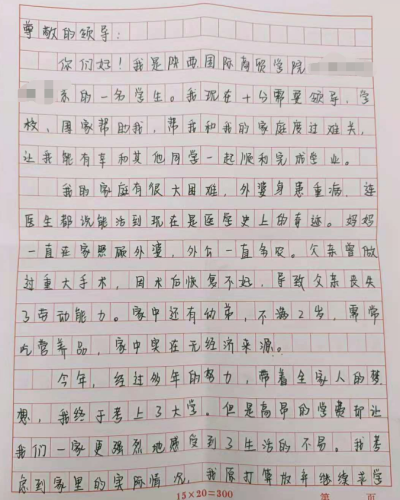 尊敬的领导：
你们好！我是陕西国际商贸学院
系的一名学生。我现在十分需要领导、学
校、国家帮助我，帮我和我的家庭度过难关，
让我能有幸和其他同学一起顺利完成学业。
我的家庭有很大困难，外婆身患重病，连
医生都说能活到现在是医学史上的奇迹。妈妈
一直在家照顾外婆，外公一直多病。父亲曾做
过重大手术，因术后恢复不好，导致父亲丧失
了劳动能力。家中还有幼弟，不满2岁，需常
吃营养品，家中实在无经济来源。
今年，经过多年的努力，带着全家人的梦
想，我终于考上了大学。但是高昂的学费却让
我们一家更强烈地感受到了生活的不易。我考
虑到家里的实际情况，我原打算放弃继续求学
15×20=300 第 页